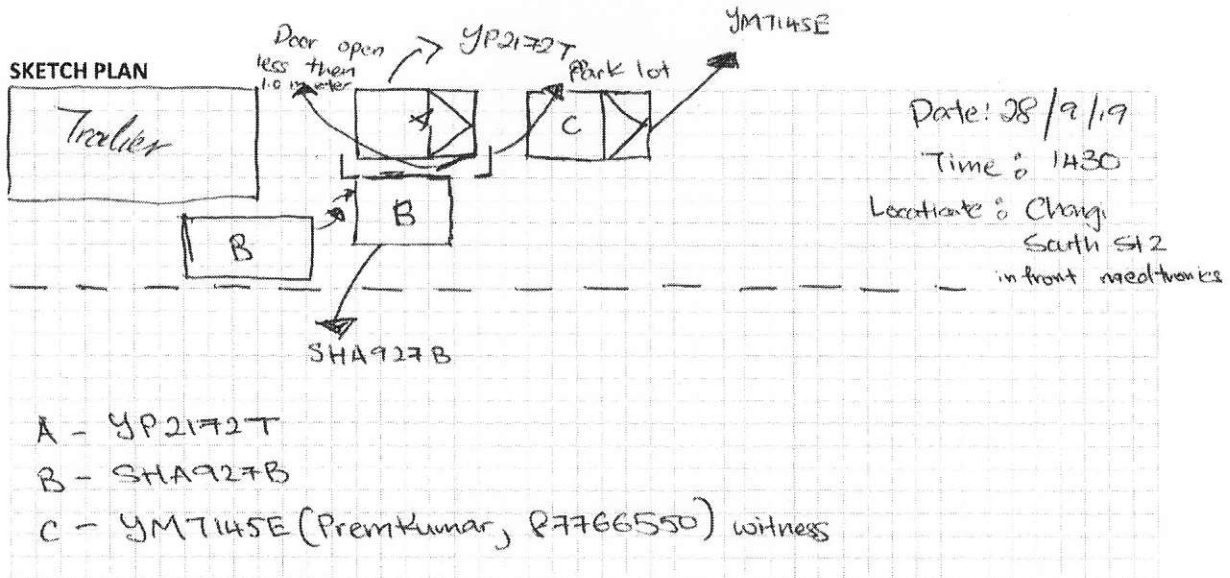 SKETCH PLAN
Door open
less then
1.0 meter
YP2172T
Park lot
YM7145E
Trailer
A
C
B
B
SHA927B
Date: 28/9/19
Time: 1430
Locatiote: Changi
South St2
in front
A - YP2172T
B - SHA927B
C - YM7145E (PremKumar, 87766550) witness